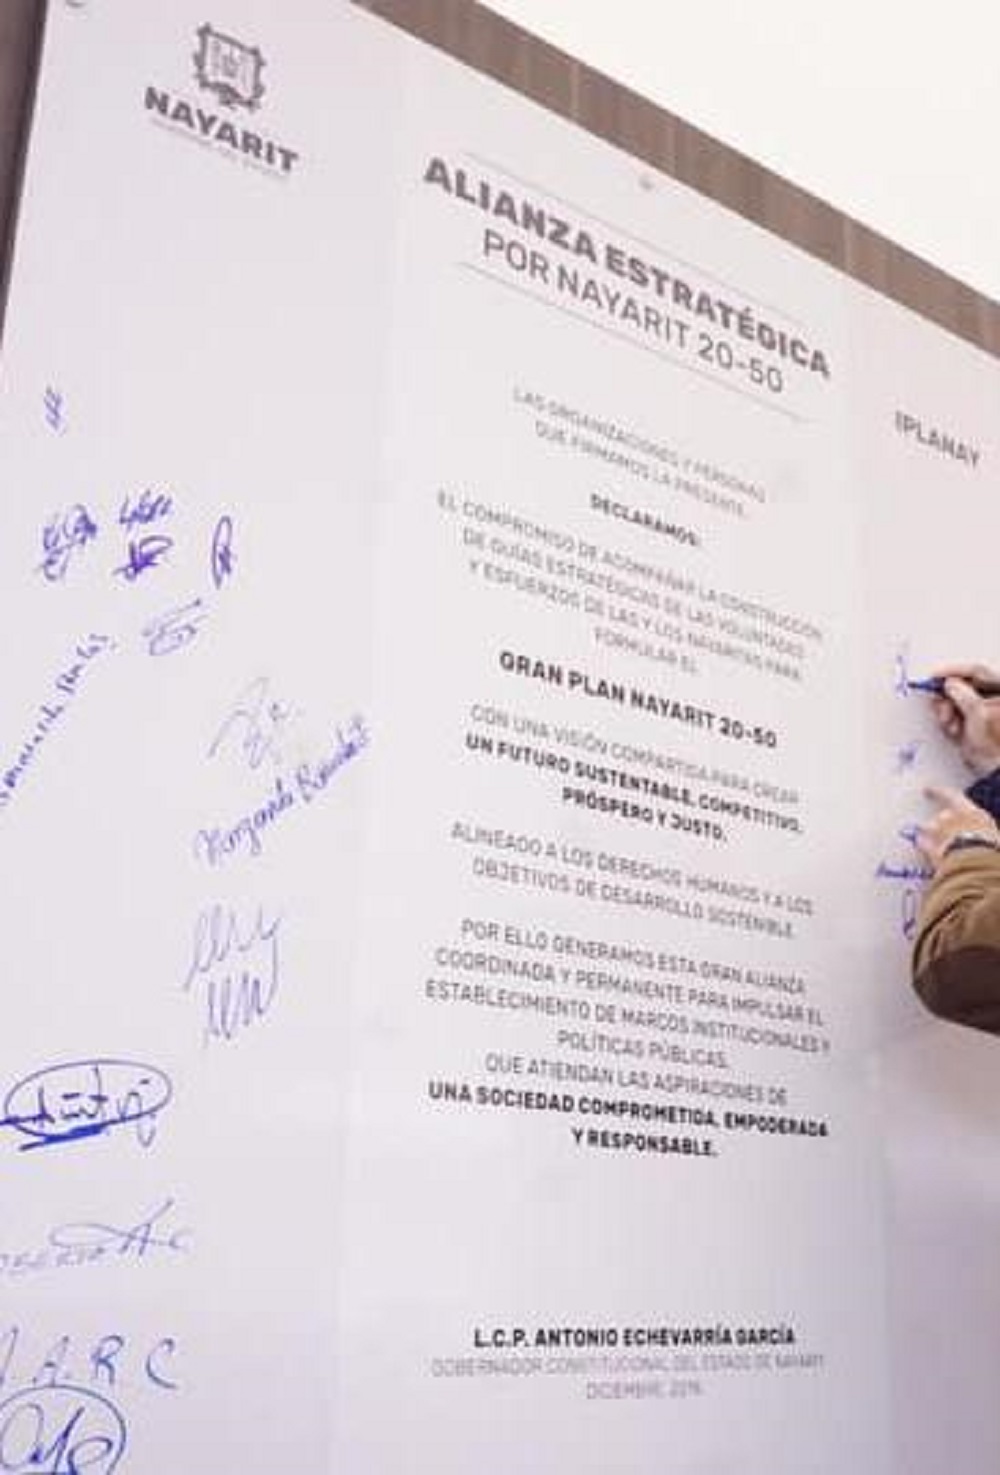 NAYARIT
ALIANZA ESTRATÉGICA
POR NAYARIT 20-50
IPLANAY
LAS ORGANIZACIONES Y PERSONAS
QUE FIRMAMOS LA PRESENTE,
DECLARAMOS:
EL COMPROMISO DE ACOMPAÑAR LA CONSTRUCCIÓN
DE GUÍAS ESTRATÉGICAS DE LAS VOLUNTADES
Y ESFUERZOS DE LAS Y LOS NAYARITAS PARA
FORMULAR EL
GRAN PLAN NAYARIT 20-50
CON UNA VISIÓN COMPARTIDA PARA CREAR
UN FUTURO SUSTENTABLE, COMPETITIVO,
PRÓSPERO Y JUSTO,
ALINEADO A LOS DERECHOS HUMANOS Y A LOS
OBJETIVOS DE DESARROLLO SOSTENIBLE.
POR ELLO GENERAMOS ESTA GRAN ALIANZA
COORDINADA Y PERMANENTE PARA IMPULSAR EL
ESTABLECIMIENTO DE MARCOS INSTITUCIONALES Y
POLÍTICAS PÚBLICAS,
QUE ATIENDAN LAS ASPIRACIONES DE
UNA SOCIEDAD COMPROMETIDA, EMPODERADA
Y RESPONSABLE.
L.C.P. ANTONIO ECHEVARRÍA GARCÍA
GOBERNADOR CONSTITUCIONAL DEL ESTADO DE NAYARIT
DICIEMBRE, 2019.
A. R C